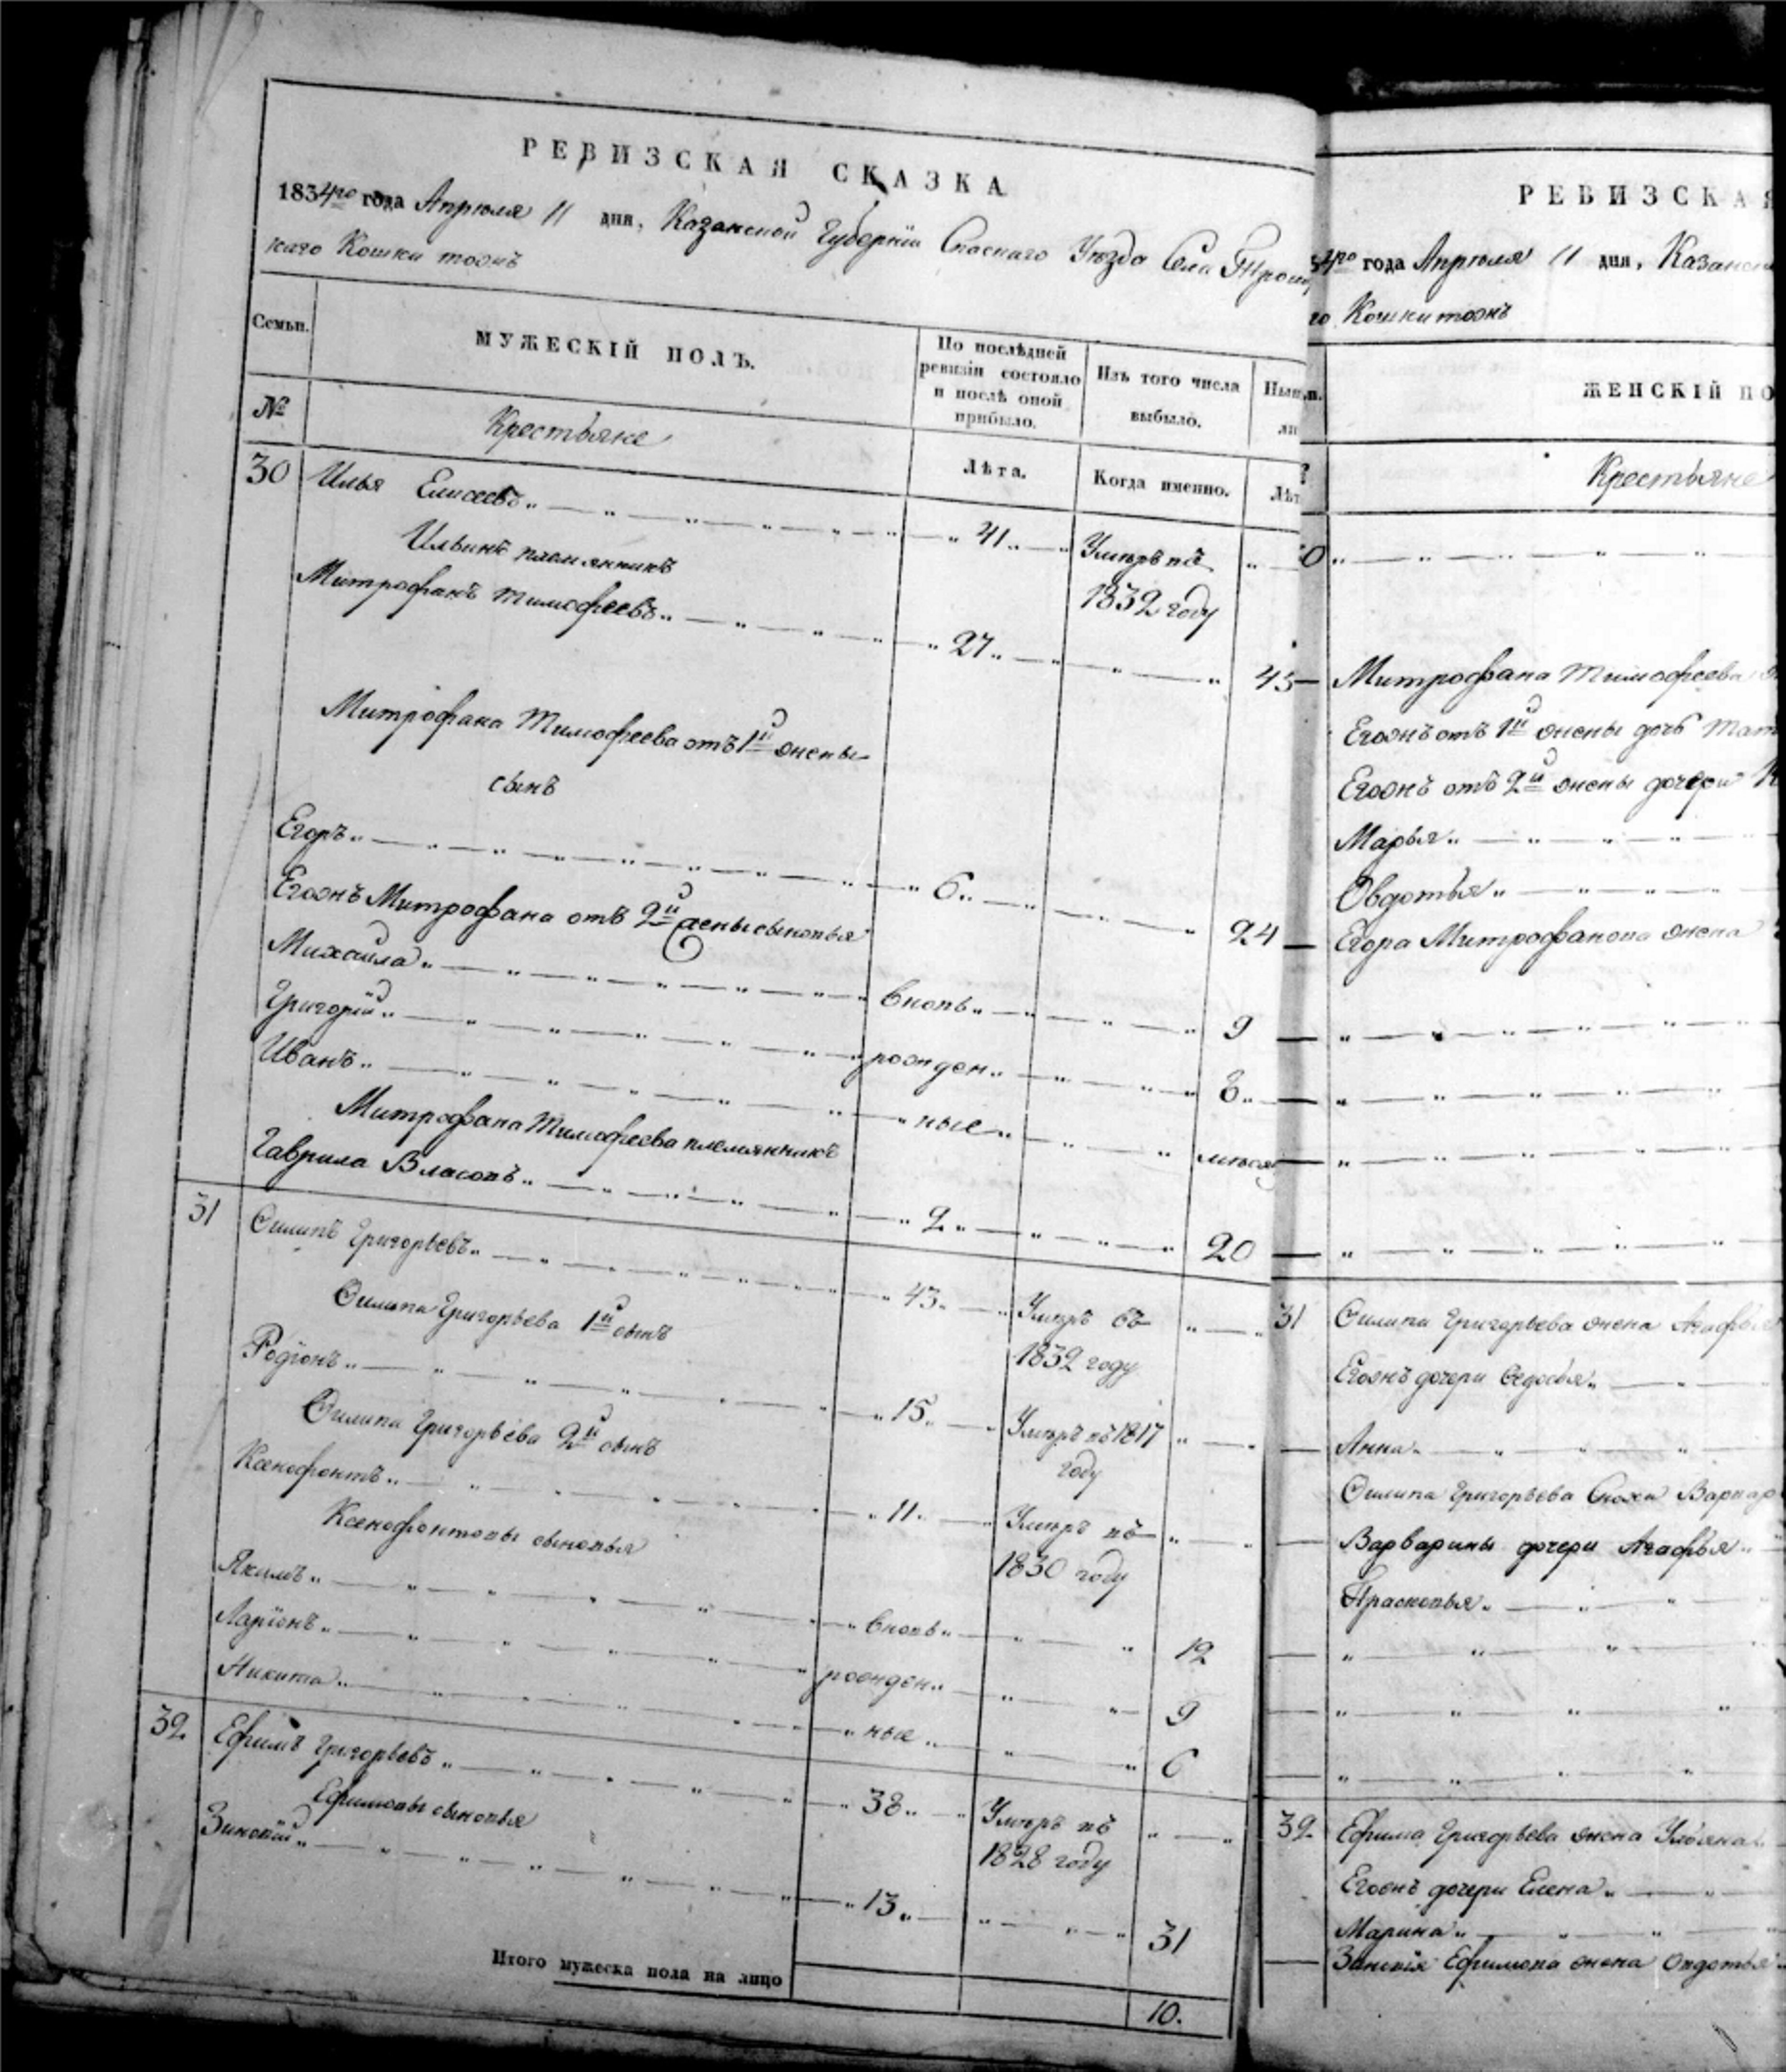 РЕВИЗСКАЯ СКАЗКА
1834го года Апрѣля 11 дня, Казанской Губерніи Спаскаго Уѣзда Села Троиц
каго Кошки тожъ
Семьи.
МУЖЕСКІЙ ПОЛЪ.
По послѣдней ревизіи состояло и послѣ оной прибыло.
Изъ того числа выбыло.
Нын
ли
№
Крестьяне
Лѣта.
Когда именно.
Лѣт
30 Илья Елисеевъ 41 Умеръ въ
1832 году
Ильинъ племянникъ
Митрофанъ Тимофеевъ 27 45
Митрофана Тимофеева отъ 1й жены
сынъ
Егоръ 6 24
Егожъ Митрофана отъ 2й жены сыновья
Михайла вновь 9
Григорій рожден 8
Иванъ ные
Митрофана Тимофеева племянникъ
Гаврила Власовъ 2 20
31 Филипъ Григорьевъ 43 Умеръ въ
1832 году
Филипа Григорьева 1й сынъ
Родіонъ 15 Умеръ въ 1817
году
Филипа Григорьева 2й сынъ
Ксенофонтъ 11 Умеръ въ
1830 году
Ксенофонтовы сыновья
Якимъ вновь 12
Ларіонъ рожден 9
Никита ные 6
32 Ефимъ Григорьевъ 38 Умеръ въ
1828 году
Ефимовы сыновья
Зиновій 13 31
Итого мужеска пола на лицо
10.
РЕВИЗСКАЯ
34го года Апрѣля 11 дня, Казанск
го Кошки тожъ
ЖЕНСКІЙ ПО
Крестьяне
Митрофана Тимофеева
Егожъ отъ 1й жены дочь Мат
Егожъ отъ 2й жены дочери
Марья
Овдотья
Егора Митрофанова жена
31 Филипа Григорьева жена Агафья
Егожъ дочери Федосья
Анна
Филипа Григорьева сноха Варвар
Варварины дочери Агафья
Прасковья
32 Ефима Григорьева жена Ульяна
Егожъ дочери Елена
Марина
Зиновія Ефимова жена Овдотья